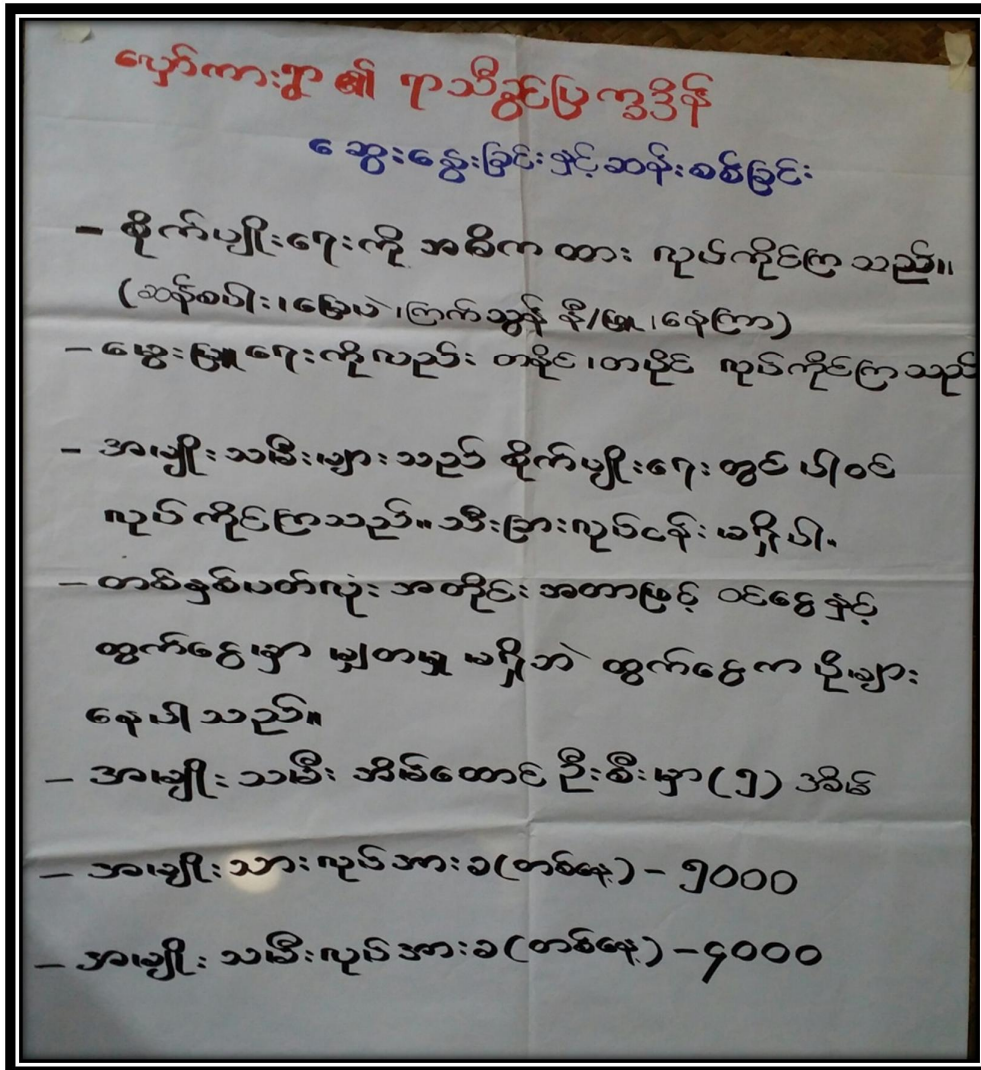 လှော်ကားရွာ ၏ ရာသီခွင်ပြက္ခဒိန်
ဆွေးနွေးခြင်းနှင့်ဆန်းစစ်ခြင်း
- စိုက်ပျိုးရေးကို အဓိက ထား လုပ်ကိုင်ကြ သည်။
(ဆန်စပါး၊မြေပဲ၊ကြက်သွန် နီ/ဖြူ၊နေကြာ)
- မွေးမြူရေးကိုလည်း တနိုင်၊တပိုင် လုပ်ကိုင်ကြသည်
- အမျိုးသမီးများသည် စိုက်ပျိုးရေးတွင် ပါဝင်
လုပ်ကိုင်ကြသည်။သီးခြားလုပ်ငန်းမရှိပါ.
- တစ်နှစ်ပတ်လုံး အတိုင်းအတာဖြင့် ဝင်ငွေနှင့်
ထွက်ငွေမှာ မျှတမှု မရှိဘဲ ထွက်ငွေက ပိုများ
နေပါသည်။
- အမျိုးသမီး အိမ်ထောင်ဦးစီးမှာ(၅) အိမ်
- အမျိုးသားလုပ်အားခ(တစ်နေ့)-၅၀၀၀
- အမျိုးသမီးလုပ်အားခ(တစ်နေ့)-၄၀၀၀